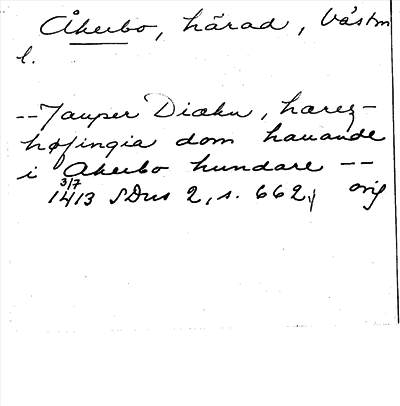 Åkerbo, härad, Västm
l.
-- Jauper Diækn, hærez-
høfingia dom hauande
i Akerbo hundare --
3/7
1413 SDns 2, s. 662, orig